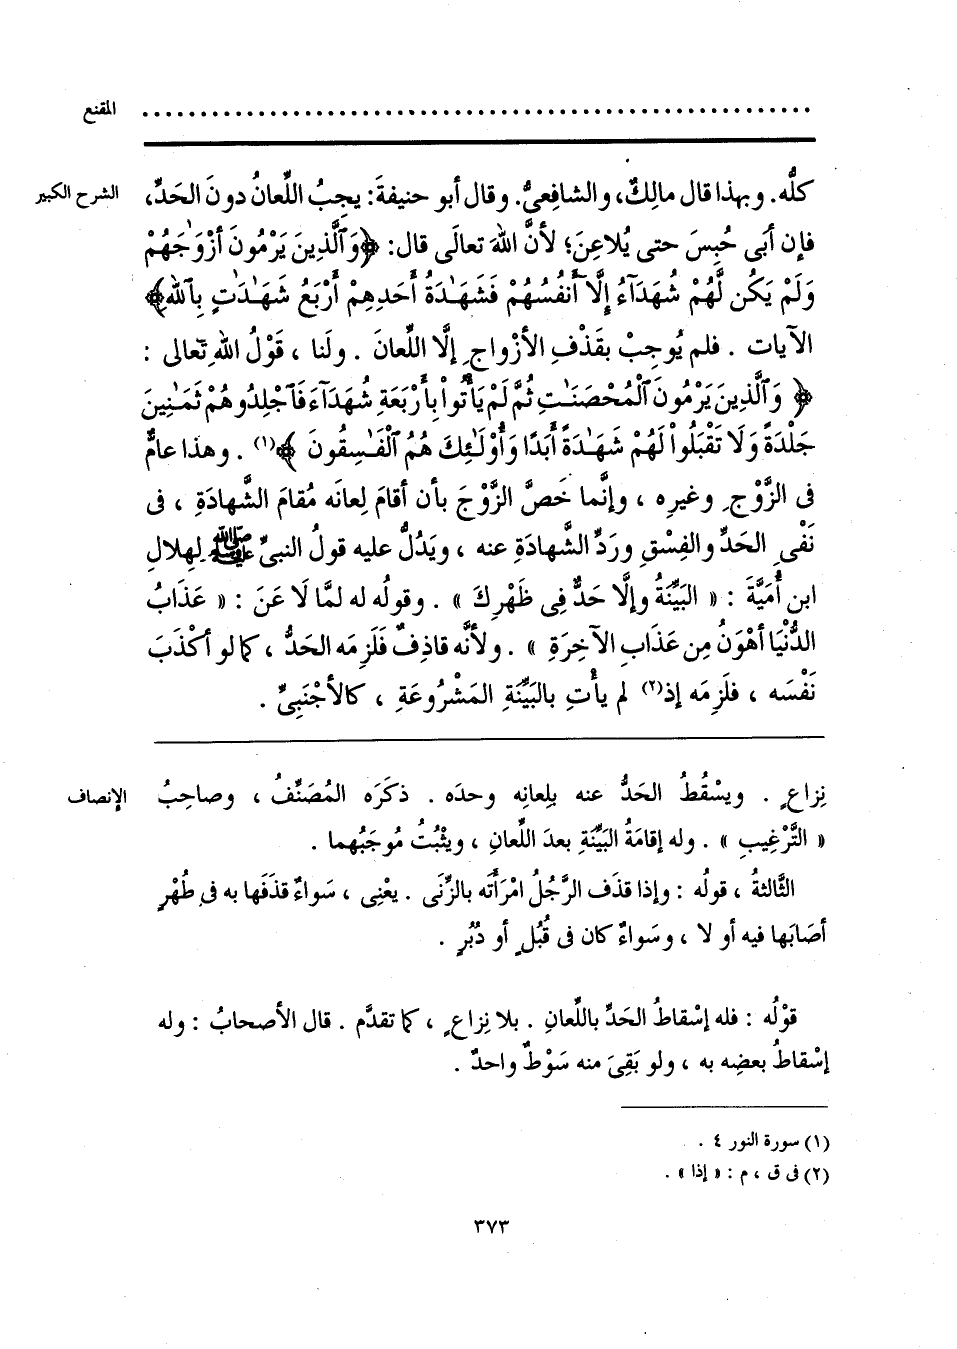 المقنع ..........................................................
الشرح الكبير
كلُّه. وبهذا قال مالِكٌ، والشافِعىُّ. وقال أبو حنيفةَ: يجِبُ اللِّعانُ دونَ الحَدِّ،
فإن أبَى حُبِسَ حتى يُلاعِنَ؛ لأنَّ اللهَ تعالَى قال: ﴿وَٱلَّذِينَ يَرْمُونَ أَزْوَٰجَهُمْ
وَلَمْ يَكُن لَّهُمْ شُهَدَآءُ إِلَّآ أَنفُسُهُمْ فَشَهَـٰدَةُ أَحَدِهِمْ أَرْبَعُ شَهَـٰدَٰتٍ بِٱللهِ﴾
الآيات . فلم يُوجِبْ بقَذْفِ الأزْواجِ إلَّا اللِّعانَ . ولَنا ، قَوْلُ اللهِ تعالى :
﴿ وَٱلَّذِينَ يَرْمُونَ ٱلْمُحْصَنَـٰتِ ثُمَّ لَمْ يَأْتُواْ بِأَرْبَعَةِ شُهَدَآءَ فَٱجْلِدُوهُمْ ثَمَـٰنِينَ
جَلْدَةً وَلَا تَقْبَلُواْ لَهُمْ شَهَـٰدَةً أَبَدًا وَأُوْلَـٰئِكَ هُمُ ٱلْفَـٰسِقُونَ ﴾(١) . وهذا عامٌّ
فى الزَّوْجِ وغيرِه ، وإنَّما خَصَّ الزَّوْجَ بأن أقامَ لِعانَه مُقامَ الشَّهادَةِ ، فى
نَفْىِ الحَدِّ والفِسْقِ ورَدِّ الشَّهادَةِ عنه ، ويَدُلُّ عليه قولُ النبىِّ ﷺ لهِلالِ
ابنِ أُمَيَّةَ : « البَيِّنَةُ وإلَّا حَدٌّ فِى ظَهْرِكَ » . وقولُه له لمَّا لَا عَنَ : « عَذَابُ
الدُّنْيَا أهْوَنُ مِن عَذَابِ الآخِرَةِ » . ولأنَّه قاذِفٌ فَلَزِمَه الحَدُّ ، كما لو أكْذَبَ
نَفْسَه ، فلَزِمَه إذ(٢) لم يأْتِ بالبَيِّنَةِ المَشْرُوعَةِ ، كالأجْنَبِىِّ .
الإنصاف
نِزاعٍ . ويسْقُطُ الحَدُّ عنه بلِعانِه وحدَه . ذكَرَه المُصَنِّفُ ، وصاحِبُ
« التَّرْغيبِ » . وله إقامَةُ البَيِّنَةِ بعدَ اللِّعانِ ، ويثْبُتُ مُوجَبُهما .
الثَّالثةُ ، قولُه : وإذا قذَف الرَّجُلُ امْرَأَتَه بالزِّنَى . يعْنِى ، سَواءٌ قذَفَها به فى طُهْرٍ
أصَابَها فيه أو لا ، وسَواءٌ كان فى قُبُلٍ أو دُبُرٍ .
قوْلُه : فله إسْقاطُ الحَدِّ باللِّعانِ . بلا نِزاعٍ ، كما تقدَّم . قال الأصحابُ : وله
إسْقاطُ بعضِه به ، ولو بَقِىَ منه سَوْطٌ واحدٌ .
(١) سورة النور ٤ .
(٢) فى ق ، م : « إذا » .
٣٧٣